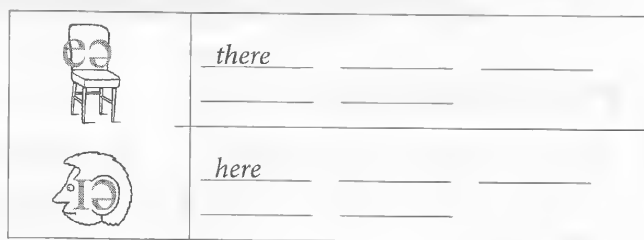 eə
there
ɪə
here